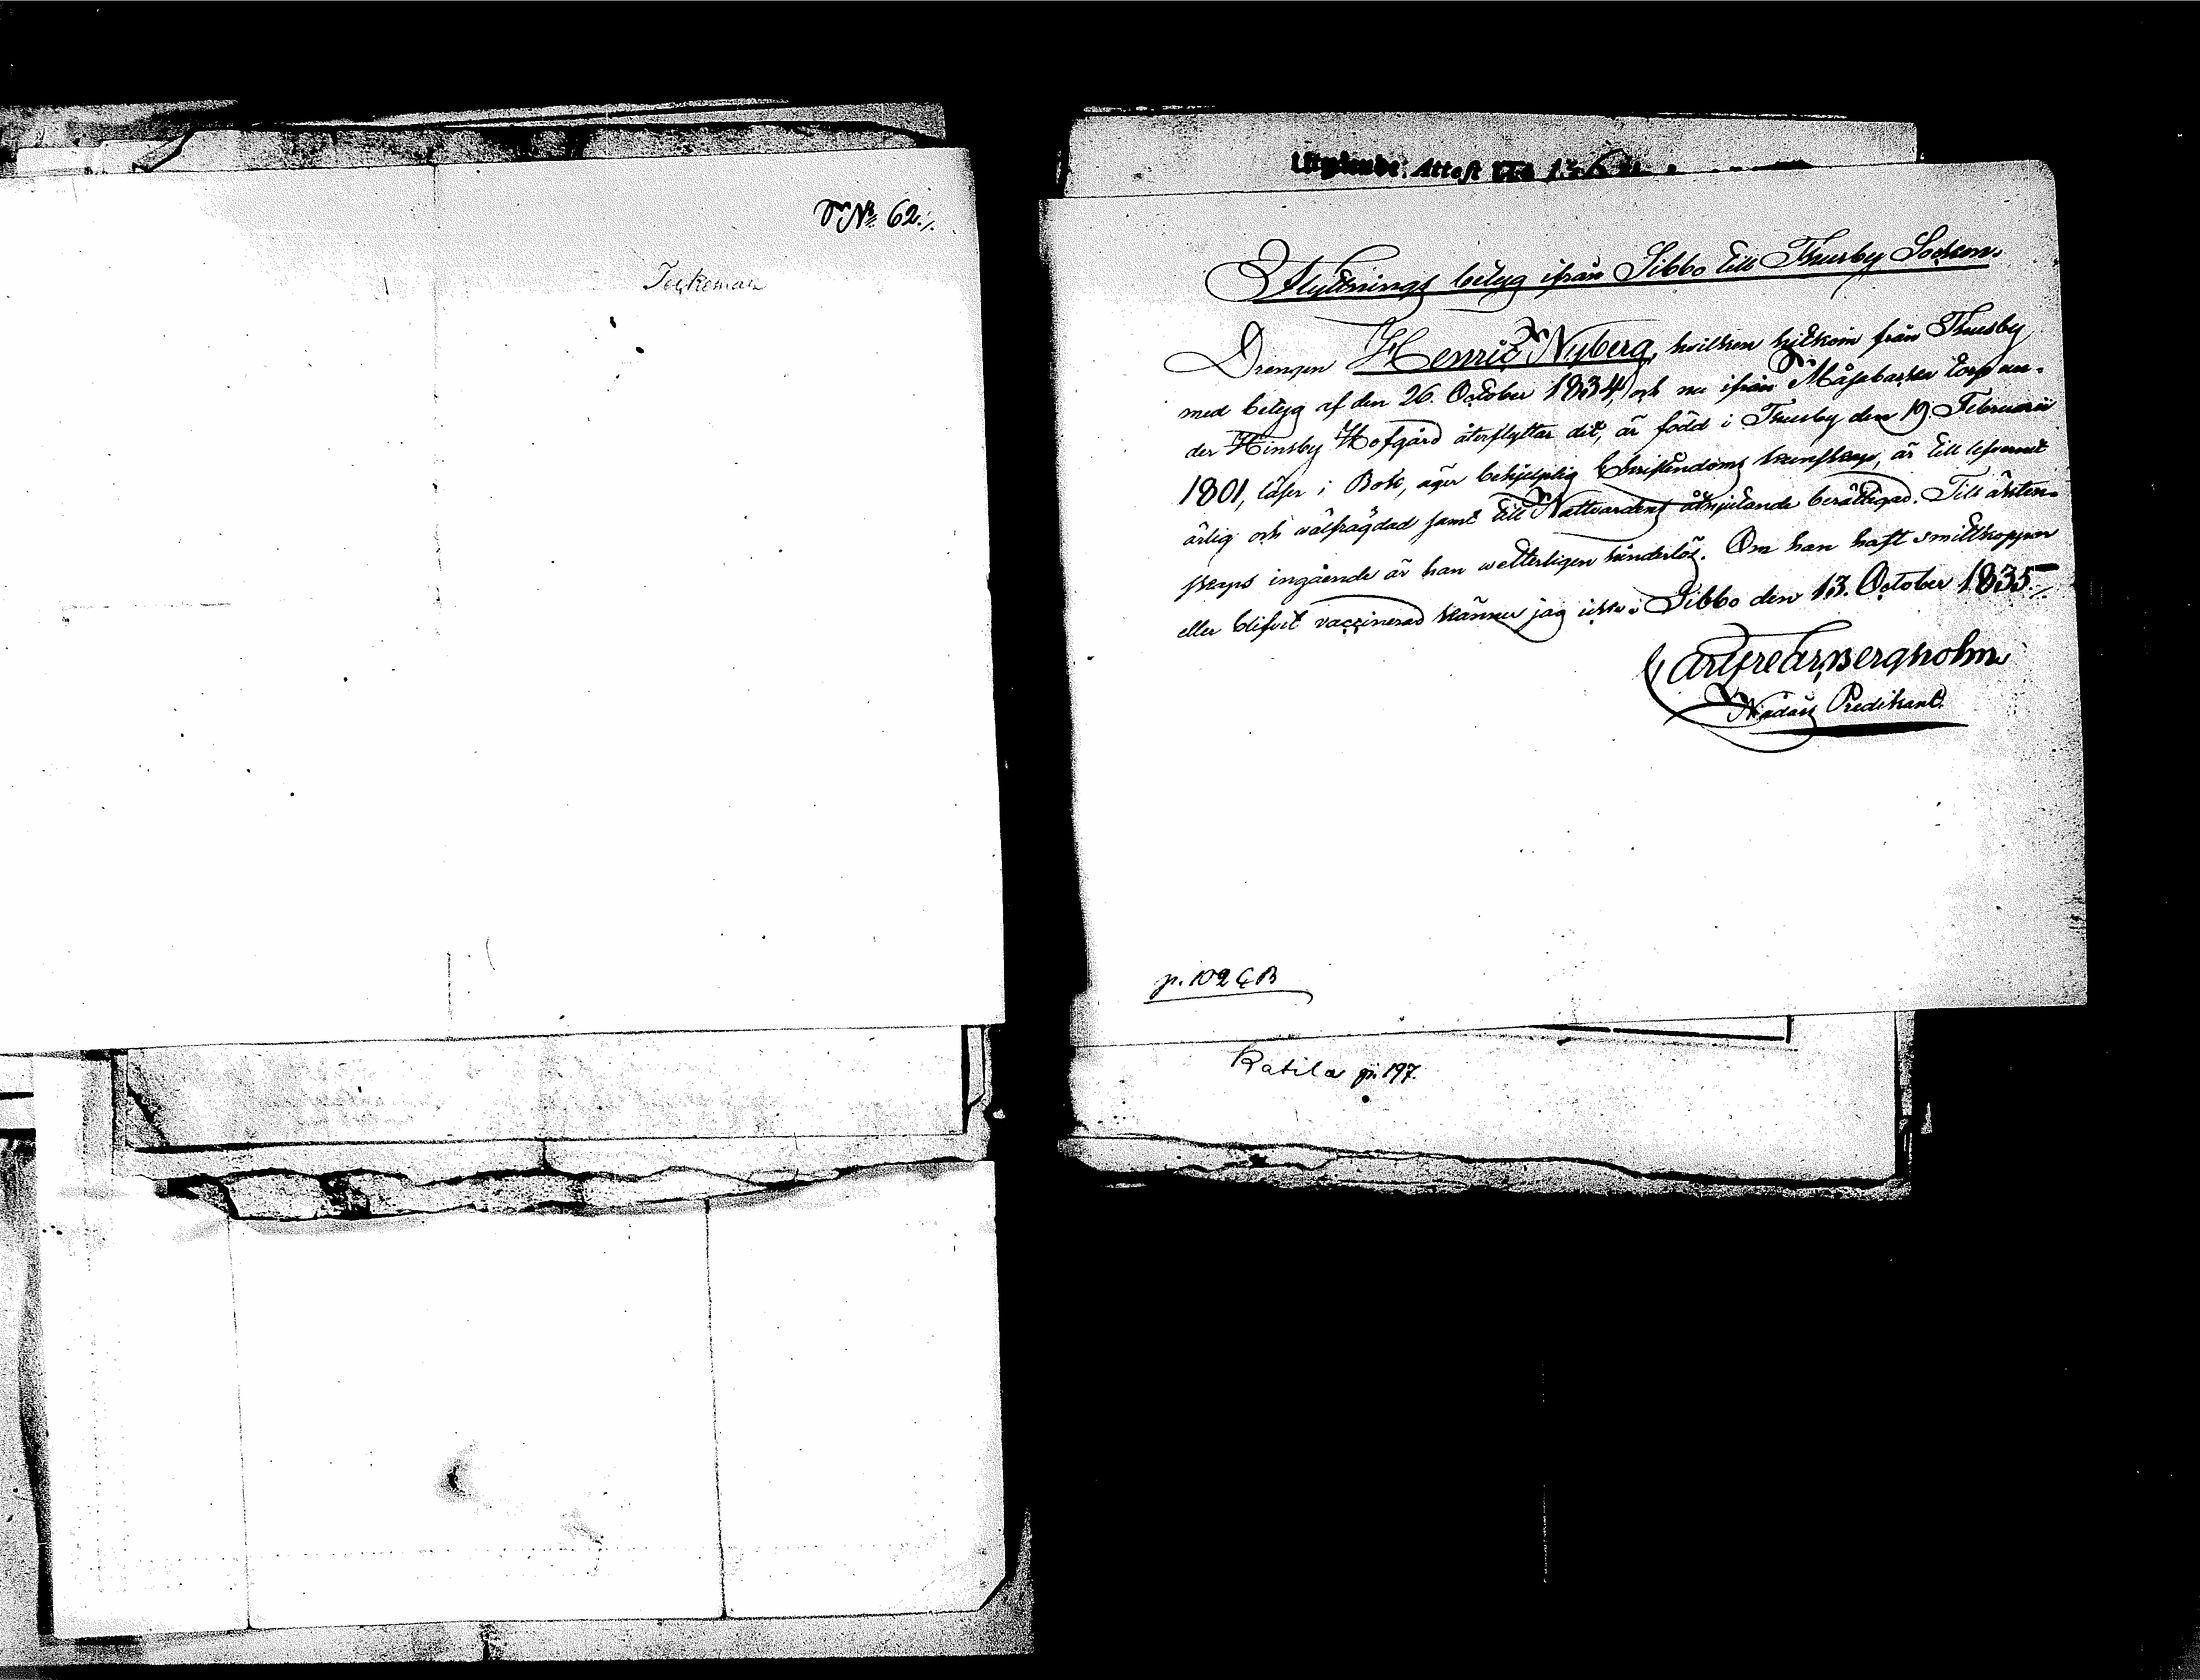 No 62./.
Jockomas
Utgående: Attest
Flyttnings betyg ifrån Sibbo till Thusby Sochn.
Drengen Henric Nyberg, hvilken hitkom från Thusby
med betyg af den 26. October 1834, och nu ifrån Måsabacka torp un-
der Hinsby Hofgård återflyttar dit, är född i Thusby den 19 Februarii
1801, läser i Bok, äger behjelplig Christendoms kunskap, är till lefvernet
ärlig och välfrägdad samt till Nattvardens åtnjutande berättigad. Till äkten-
skaps ingående är han wetterligen hinderlös. Om han haft smittkoppor
eller blifvit vaccinerad känner jag icke. Sibbo den 13. October 1835./.
Carl Fredr Bergholm
Nådårs Predikant.
p. 102 CB
Ratila p. 197.